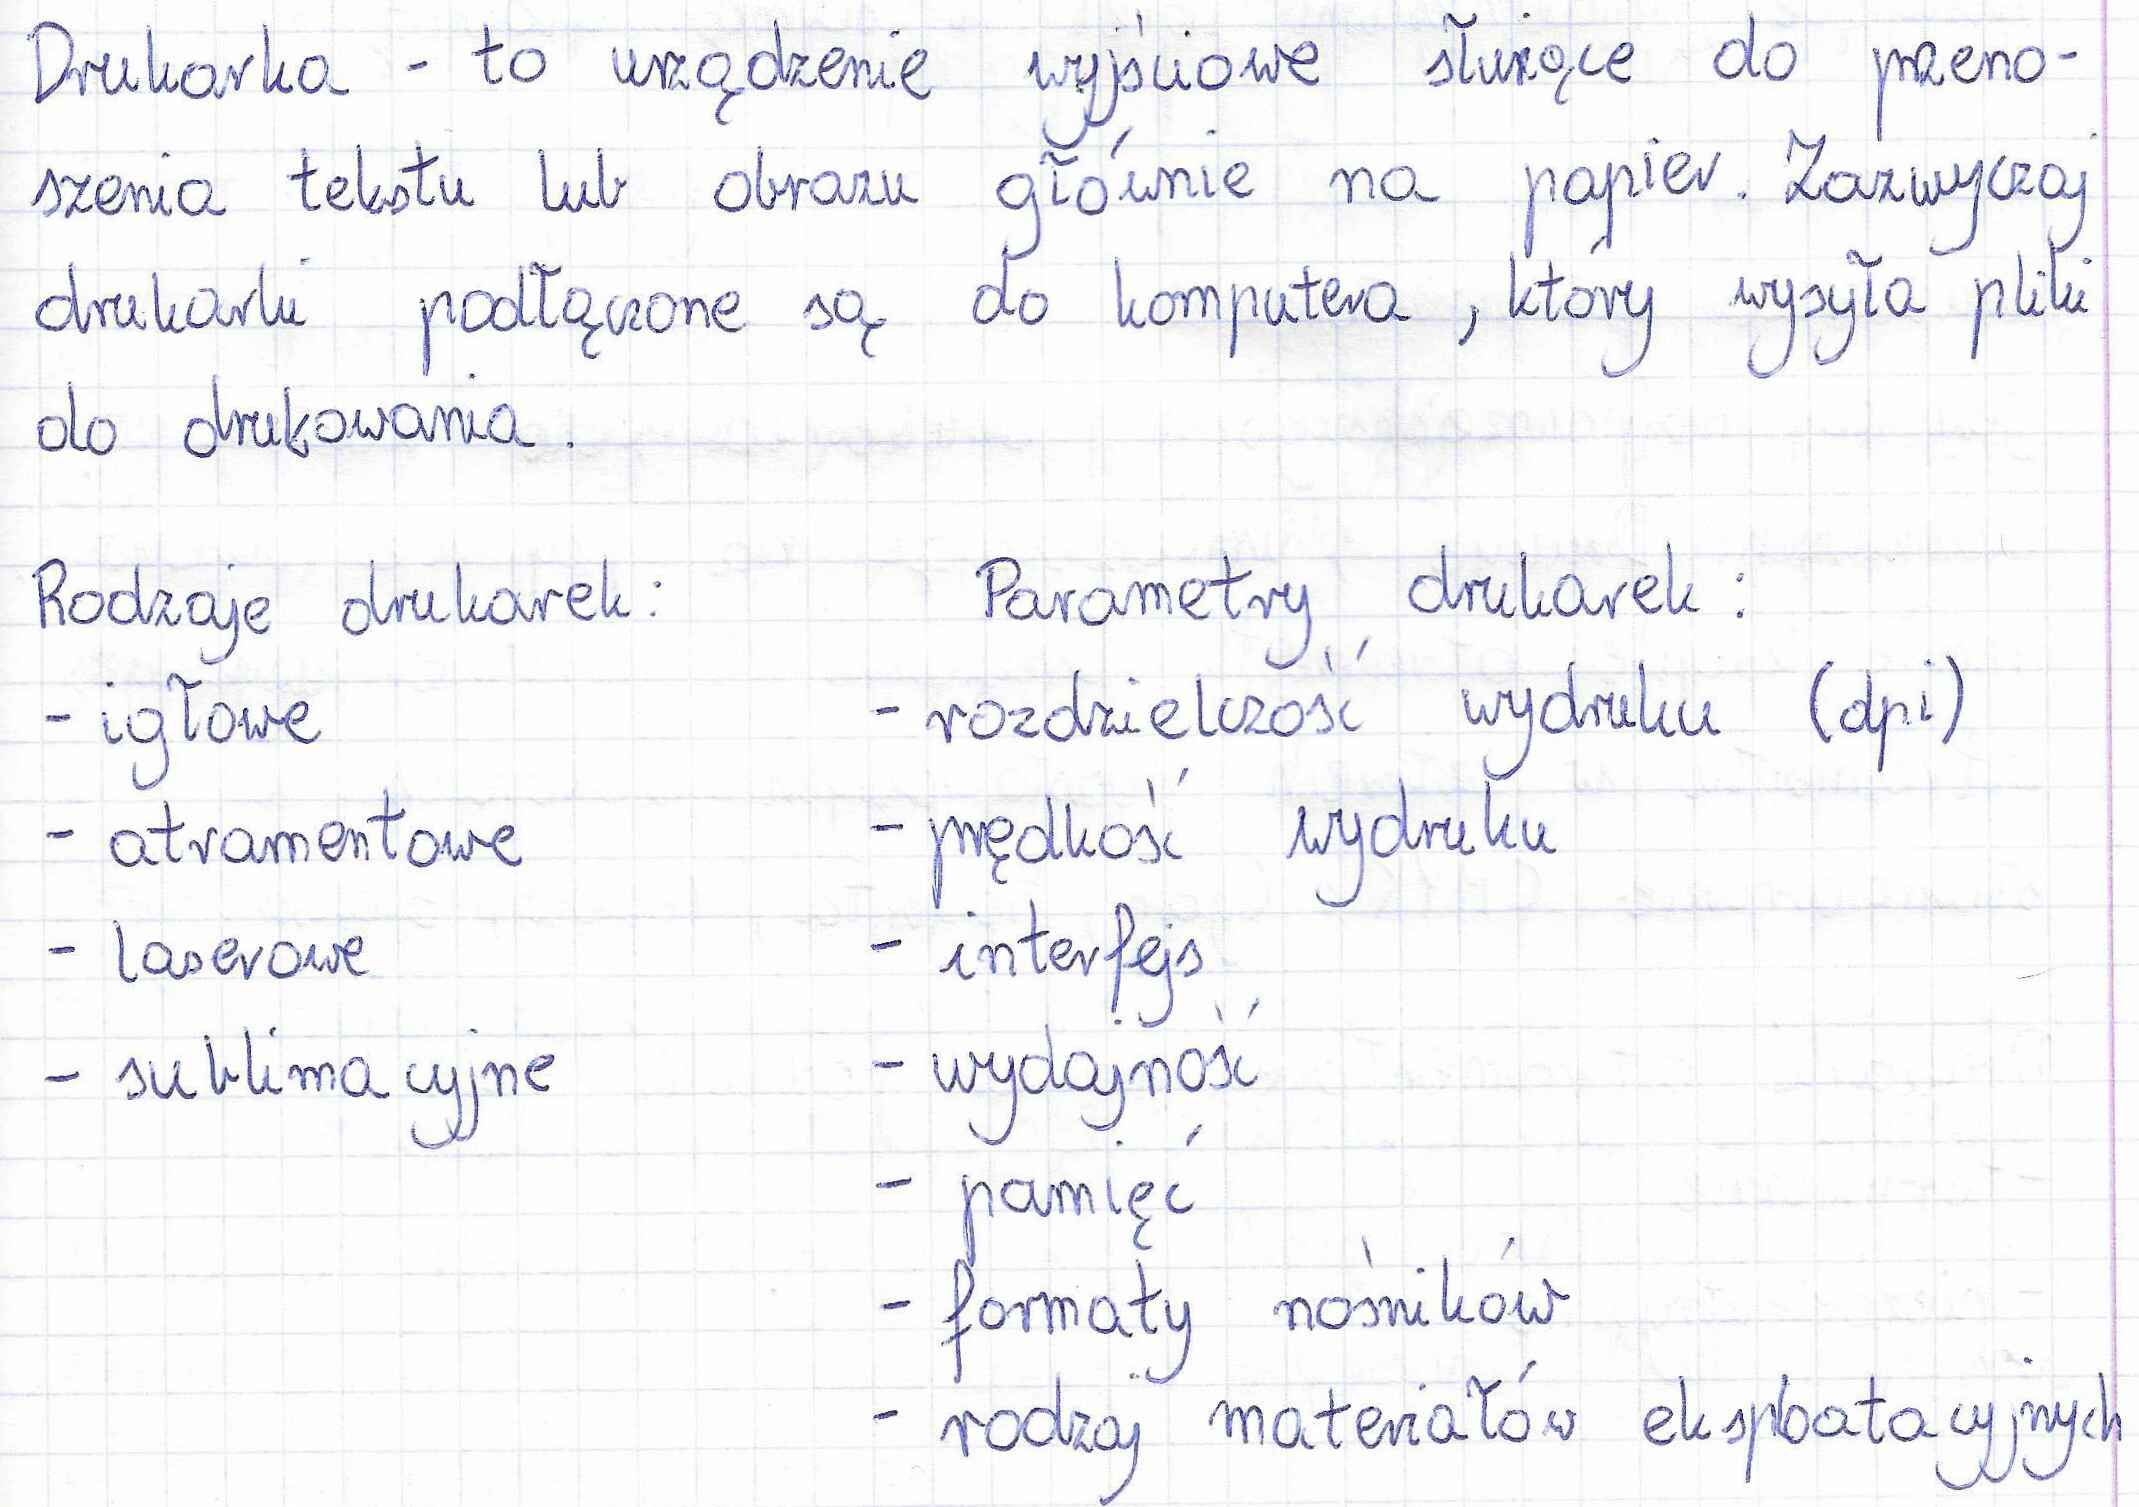 Drukarka - to urządzenie wyjściowe służące do przeno-
szenia tekstu lub obrazu głównie na papier. Zazwyczaj
drukarki podłączone są do komputera, który wysyła pliki
do drukowania.
Rodzaje drukarek:
- igłowe
- atramentowe
- laserowe
- sublimacyjne
Parametry drukarek:
- rozdzielczość wydruku (dpi)
- prędkość wydruku
- interfejs
- wydajność
- pamięć
- formaty nośników
- rodzaj materiałów eksploatacyjnych